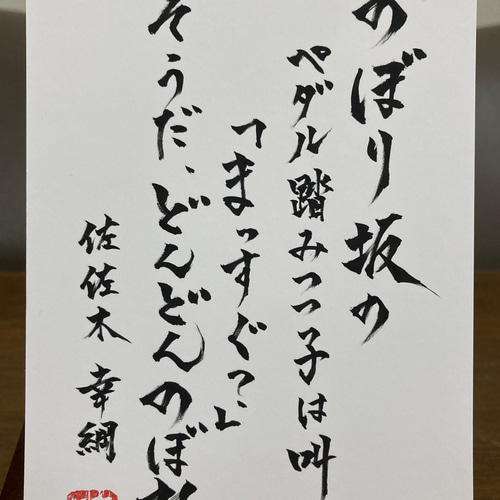 のぼり坂の
ペダル踏みつつ子は叫
「まっすぐ?」
そうだ、どんどんのぼ
佐佐木幸綱